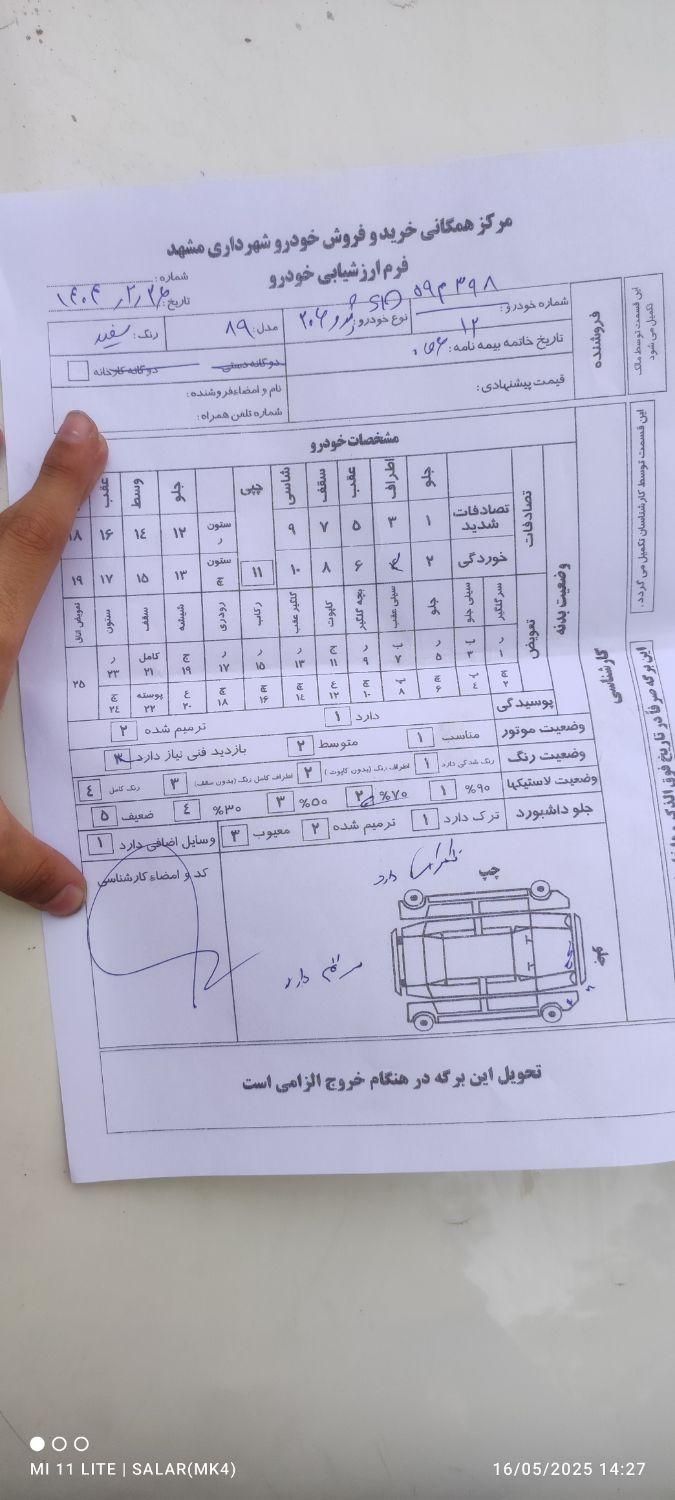 مرکز همگانی خرید و فروش خودرو شهرداری مشهد
فرم ارزشیابی خودرو
شماره :
تاریخ: ۱۴۰۴٫۲٫۲۶
این قسمت توسط مالک تکمیل می شود
فروشنده
شماره خودرو :
نوع خودرو: پژو ۲۰۶ SD
مدل: ۸۹
رنگ: سفید
تاریخ خاتمه بیمه نامه:
دوگانه دستی
دوگانه کارخانه
قیمت پیشنهادی:
نام و امضاءفروشنده:
شماره تلفن همراه:
این قسمت توسط کارشناسان تکمیل می گردد .
کارشناسی
مشخصات خودرو
وضعیت بدنه
تصادفات
جلو اطراف عقب سقف شاسی جلو وسط عقب
تصادفات شدید ۱ ۳ ۵ ۷ ۹ ستون ر ۱۲ ۱٤ ۱۶ ۱۸
خوردگی ۲ ۶ ۸ ۱۰ ۱۱ ستون چ ۱۳ ۱۵ ۱۷ ۱۹
تعویض
سر گلگیر سینی جلو جلو سینی عقب بچه گلگیر کاپوت گلگیر عقب رکاب رودری شیشه سقف ستون تعویض اتاق
ر ۱ ج ۳ ر ۵ ج ۷ ر ۹ ج ۱۱ ر ۱۳ ر ۱۵ ر ۱۷ ج ۱۹ کامل ۲۱ ر ۲۳ ۲۵
چ ۲ ٤ چ ۶ ۸ چ ۱۰ ع ۱۲ چ ۱٤ چ ۱۶ چ ۱۸ ع ۲۰ پوسته ۲۲ چ ۲٤
پوسیدگی دارد ۱ ترمیم شده ۲
وضعیت موتور مناسب ۱ متوسط ۲ بازدید فنی نیاز دارد ۳
وضعیت رنگ رنگ شدگی دارد ۱ اطراف رنگ (بدون کاپوت) ۲ اطراف کامل رنگ (بدون سقف) ۳ رنگ کامل ٤
وضعیت لاستیکها ۹۰% ۱ ۷۰% ۲ ۵۰% ۳ ۳۰% ٤ ضعیف ۵
جلو داشبورد ترک دارد ۱ ترمیم شده ۲ معیوب ۳ وسایل اضافی دارد ۱
کد و امضاء کارشناسی
چپ
دارد
دارد
تحویل این برگه در هنگام خروج الزامی است
MI 11 LITE | SALAR(MK4)
16/05/2025 14:27